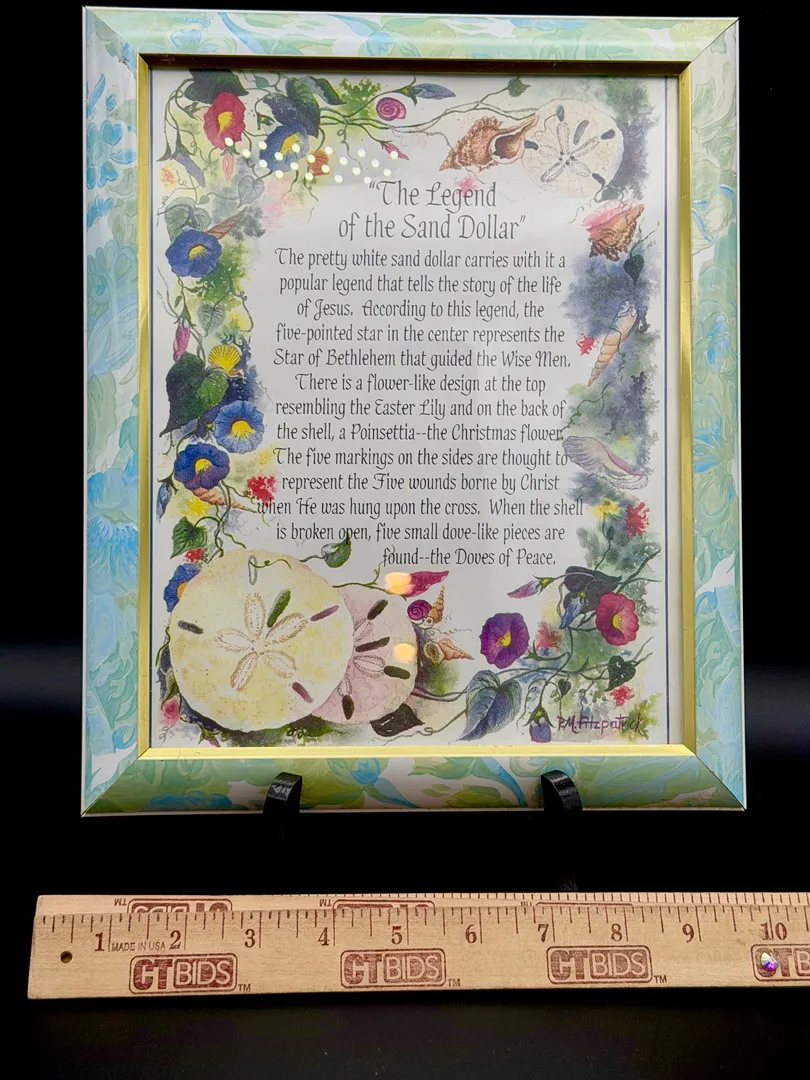 "The Legend
of the Sand Dollar"
The pretty white sand dollar carries with it a
popular legend that tells the story of the life
of Jesus. According to this legend, the
five-pointed star in the center represents the
Star of Bethlehem that guided the Wise Men.
There is a flower-like design at the top
resembling the Easter Lily and on the back of
the shell, a Poinsettia--the Christmas flower.
The five markings on the sides are thought to
represent the Five wounds borne by Christ
when He was hung upon the cross. When the shell
is broken open, five small dove-like pieces are
found--the Doves of Peace.
P.M. Fitzpatrick
TM TM
1 MADE IN USA 2 3 4 5 6 7 8 9 10
CTBIDS TM CTBIDS TM CTBIDS TM CTB